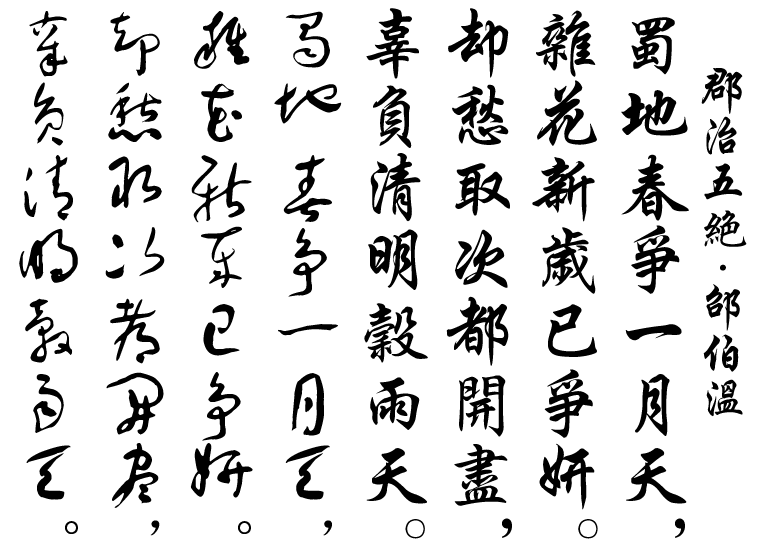 郡治五絶·邵伯溫
蜀地春爭一月天，
雜花新歲已爭妍。
却愁取次都開盡，
辜負清明穀雨天。
蜀地春爭一月天，
雜花新歲已爭妍。
却愁取次都開盡，
辜負清明穀雨天。